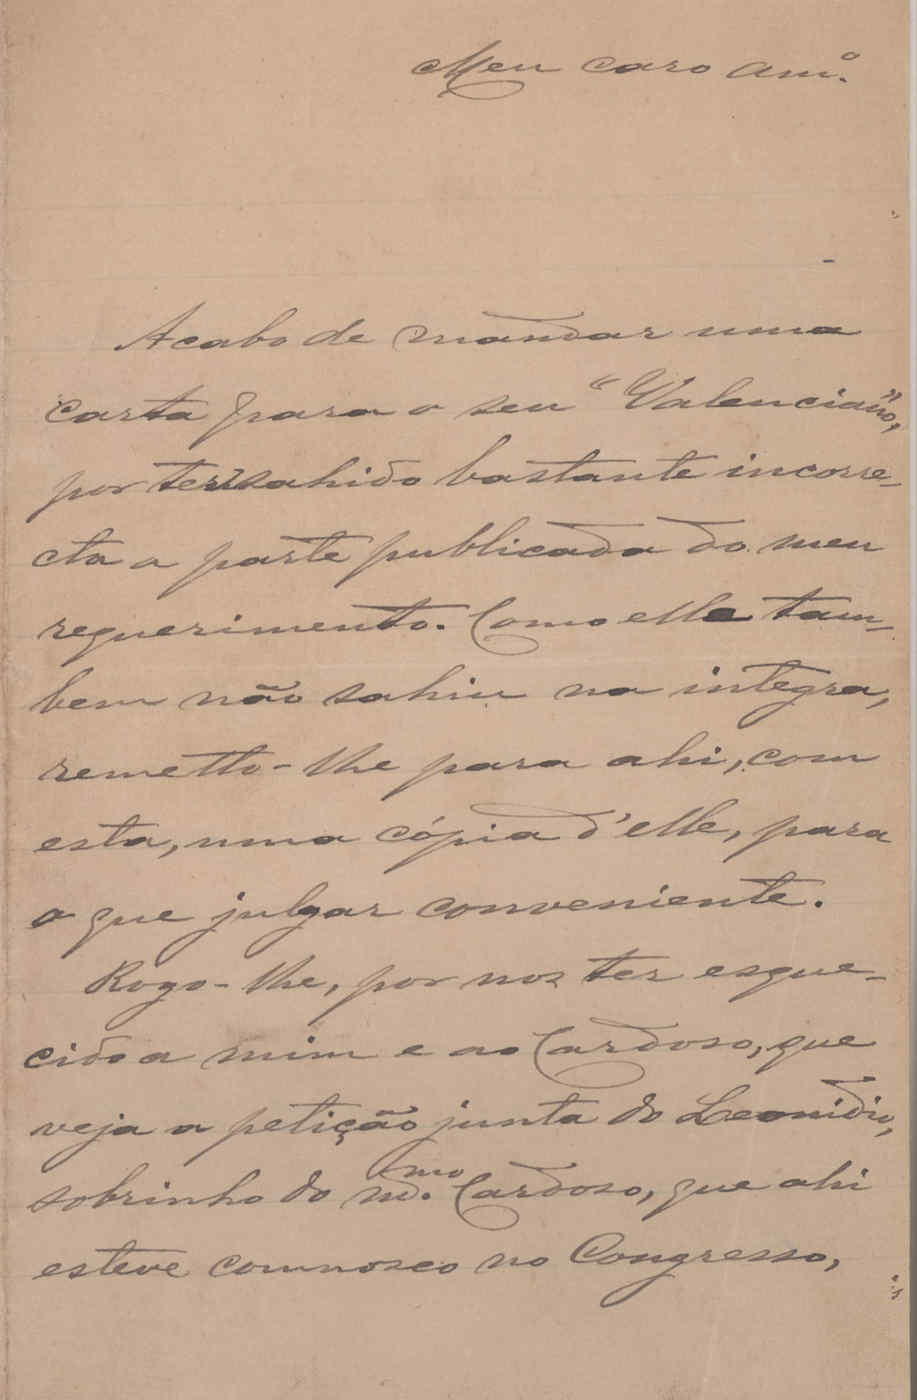 Meu caro amº.
Acabo de mandar uma
carta para o seu "Valenciano",
por ter sahido bastante incorre-
cta a parte publicada do meu
requerimento. Como elle tam-
bem não sahiu na integra,
remetto-lhe para ahi, com
esta, uma cópia d'elle, para
o que julgar conveniente.
Rogo-lhe, por nos ter esque-
cido a mim e ao Cardoso, que
veja a petição junta do Leonidio,
sobrinho do mmo. Cardoso, que ahi
esteve comnosco no Congresso,